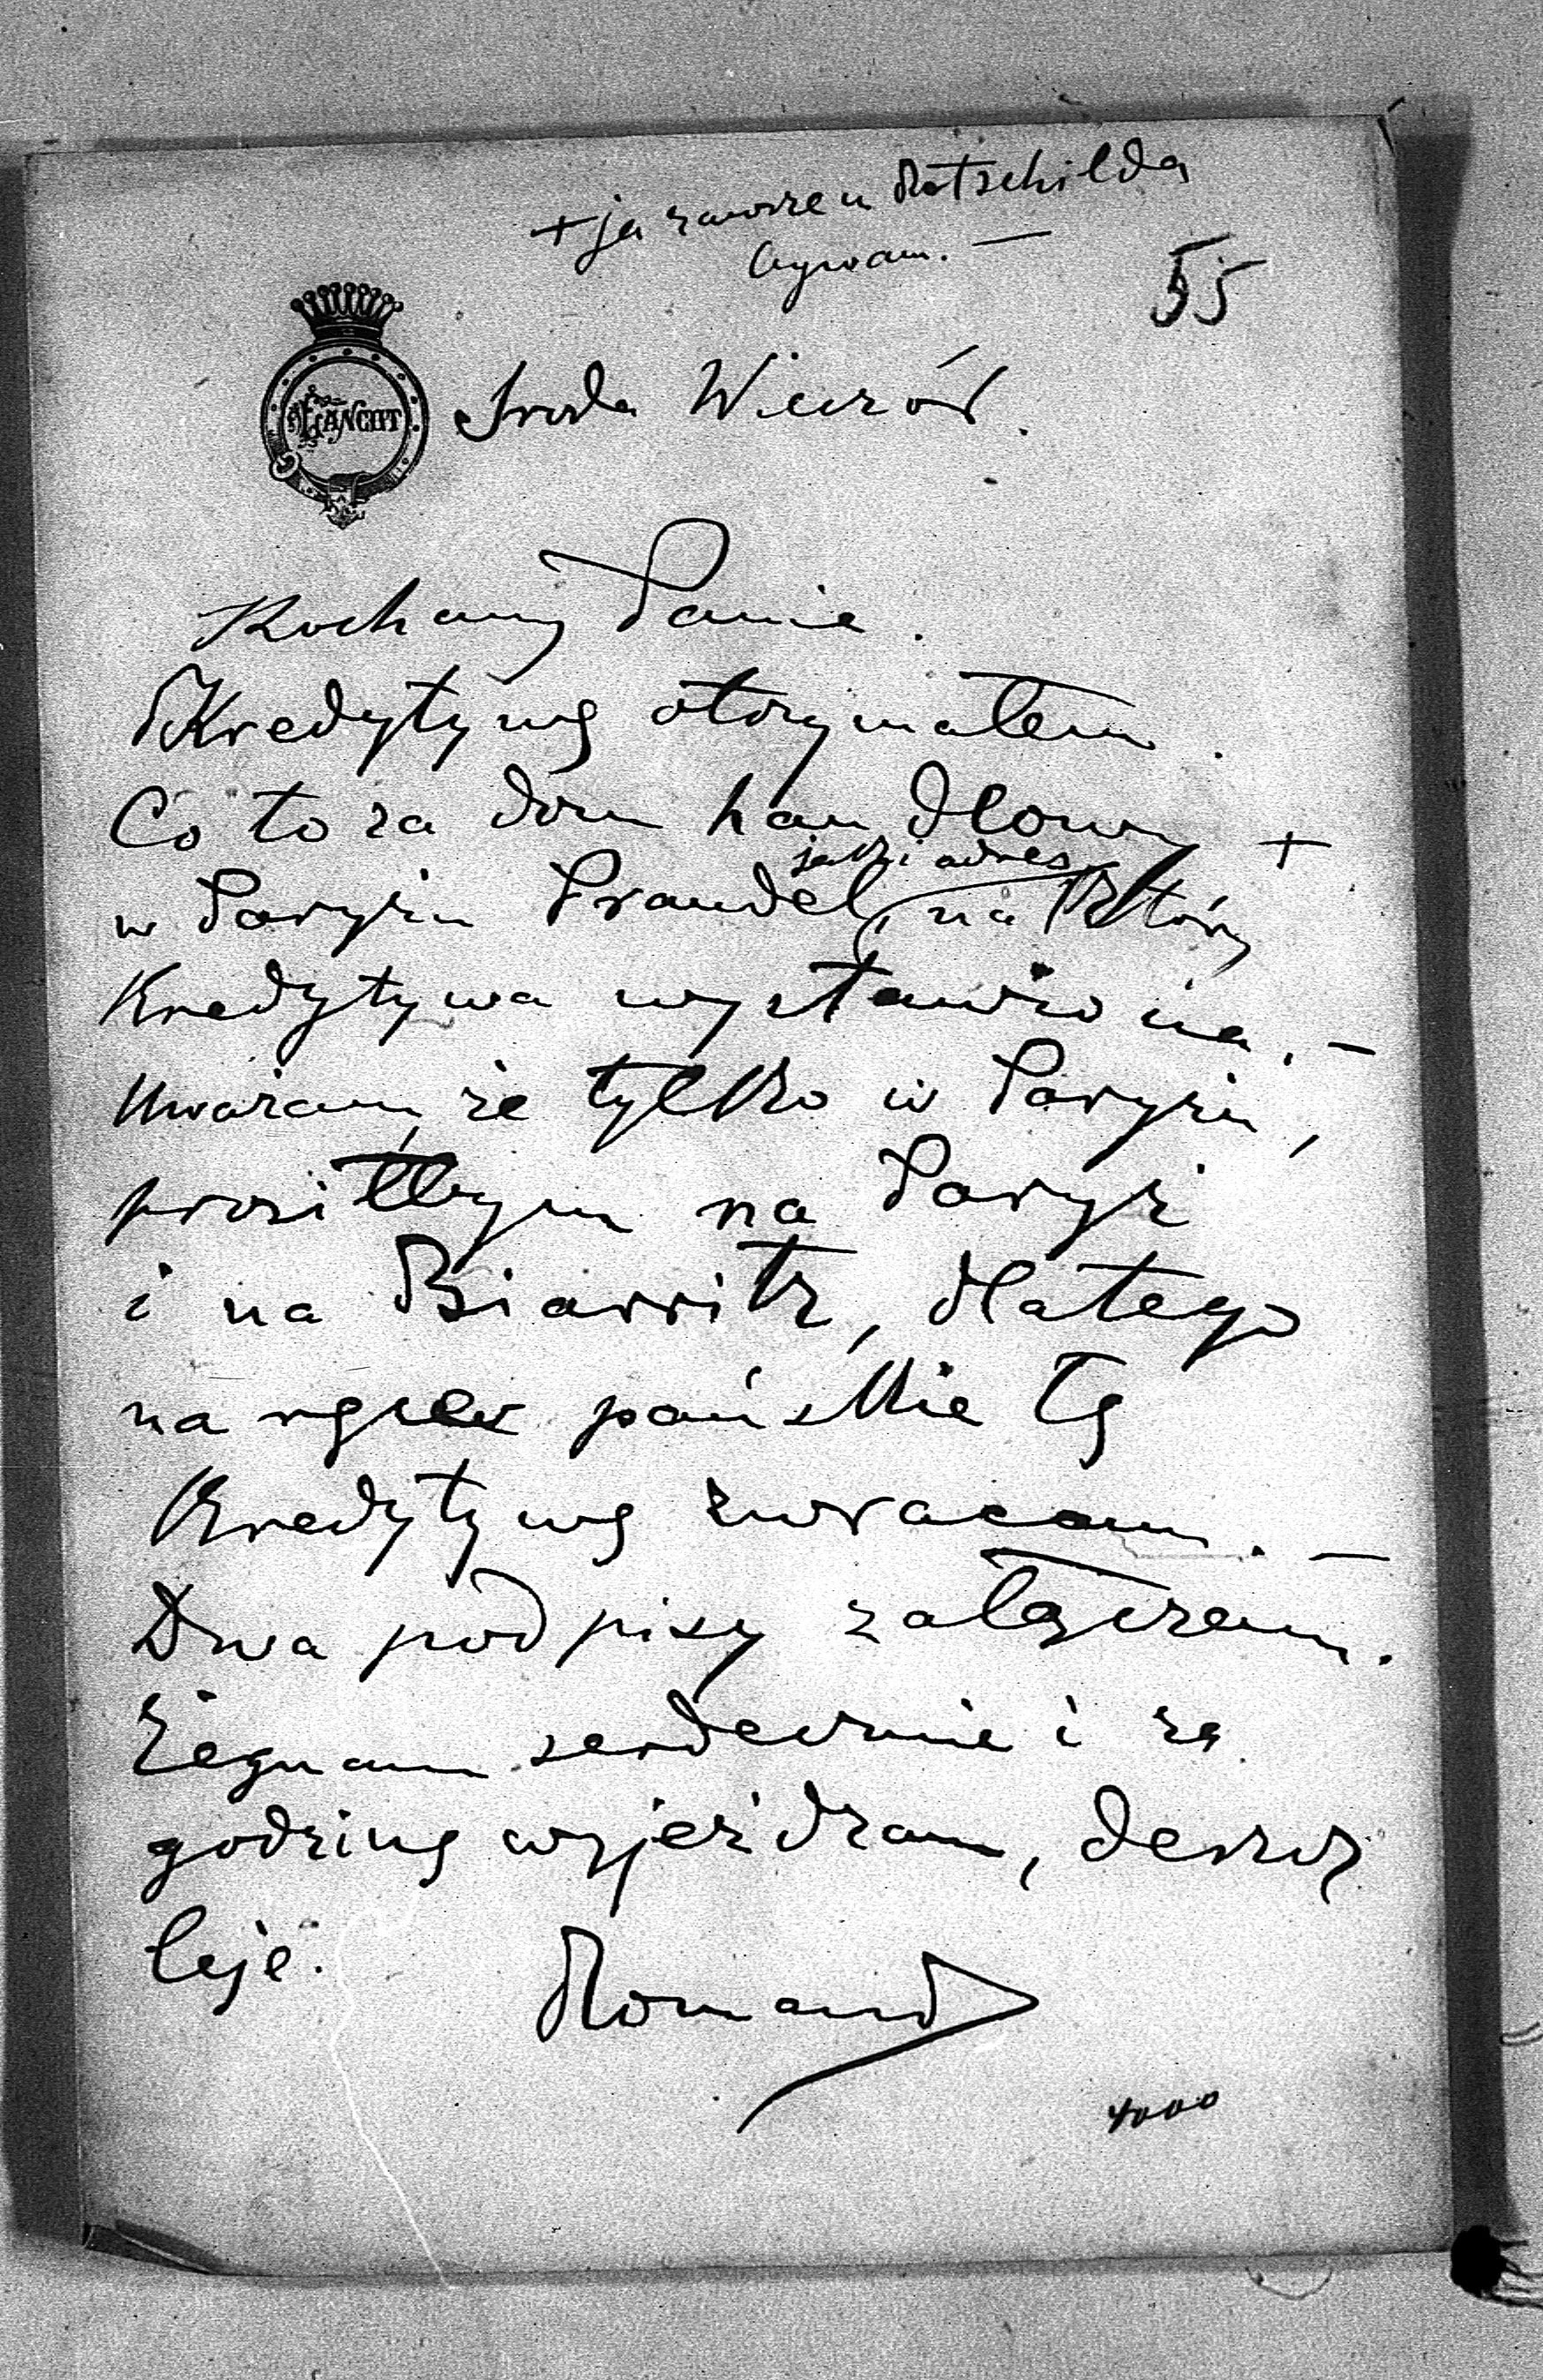 + ja zawsze u Rotschilda
bywam. —
55
ŁAŃCUT
Sroda Wieczór.
Kochany Panie.
Kredytywę otrzymałem.
Co to za dom handlowy +
jaki adres
w Paryżu Prandel, na który
Kredytywa wystawiona. —
Uważam, że tylko w Paryżu,
prosiłbym na Paryż
i na Biarritz, dlatego
na ręce pańskie tę
Kredytywę zwracam. —
Dwa podpisy załączam.
Żegnam serdecznie i za
godzinę wyjeżdzam, deszcz
leje.
Roman
4000